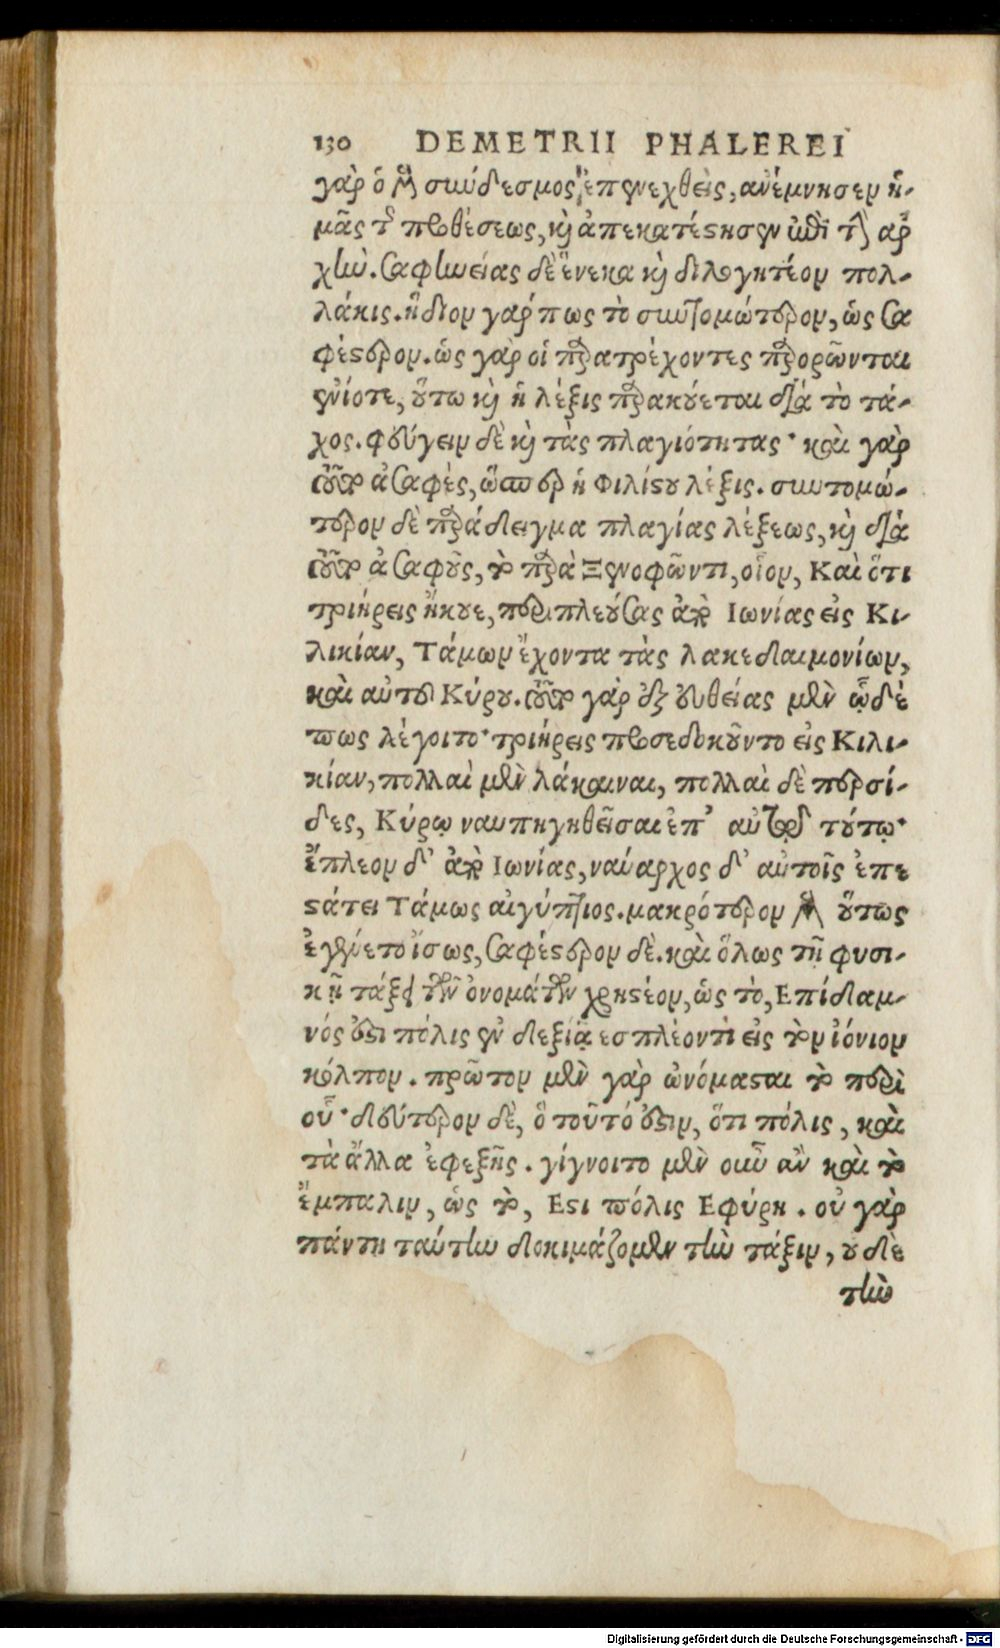 130 DEMETRII PHALEREI
γὰρ ὁ δὲ σύνδεσμος ἐπενεχθεὶς, ἀνέμνησεν ἡ-
μᾶς τῆς προθέσεως, καὶ ἀπεκατέστησεν ἐπὶ τὴν ἀρ
χὴν. σαφηνείας δὲ ἕνεκα καὶ διλογητέον πολ-
λάκις. ἥδιον γάρ πως τὸ συντομώτερον, ὡς σα
φέστερον. ὡς γὰρ οἱ παρατρέχοντες παρορῶνται
ἐνίοτε, οὕτω καὶ ἡ λέξις παρακούεται διὰ τὸ τά-
χος. φεύγειν δὲ καὶ τὰς πλαγιότητας· καὶ γὰρ
τοῦτο ἀσαφὲς, ὥσπερ ἡ Φιλίστου λέξις. συντομώ-
τερον δὲ παράδειγμα πλαγίας λέξεως, καὶ διὰ
τοῦτο ἀσαφοῦς, τὸ παρὰ Ξενοφῶντι, οἷον, Καὶ ὅτι
τριήρεις ἤκουε, περιπλεούσας ἀπὸ Ιωνίας εἰς Κι-
λικίαν, Τάμων ἔχοντα τὰς λακεδαιμονίων,
καὶ αὐτοῦ Κύρου. τοῦτο γὰρ ἐξ εὐθείας μὲν ᾧδέ
πως λέγοιτο· τριήρεις προσεδοκοῦντο εἰς Κιλι-
κίαν, πολλαὶ μὲν λάκαιναι, πολλαὶ δὲ περσί-
δες, Κύρῳ ναυπηγηθεῖσαι ἐπ' αὐτῷ τούτῳ·
ἔπλεον δ' ἀπὸ Ιωνίας, ναύαρχος δ' αὐτοῖς ἐπε
στάτει Τάμως αἰγύπτιος. μακρότερον μὲν οὕτως
ἐγένετο ἴσως, σαφέστερον δὲ. καὶ ὅλως τῇ φυσι-
κῇ τάξει τῶν ὀνομάτων χρηστέον, ὡς τὸ, Επίδαμ-
νός ἐστι πόλις ἐν δεξιᾷ εσπλέοντι εἰς τὸν ἰόνιον
κόλπον. πρῶτον μὲν γὰρ ὠνόμασται τὸ περὶ
οὗ· δεύτερον δὲ, ὃ τοῦτό ἐστιν, ὅτι πόλις, καὶ
τὰ ἄλλα ἐφεξῆς. γίγνοιτο μὲν οὖν ἂν καὶ τὸ
ἔμπαλιν, ὡς τὸ, Εστι πόλις Εφύρη. οὐ γὰρ
πάντη ταύτην δοκιμάζομεν τὴν τάξιν, οὐδὲ
τὴν
Digitalisierung gefördert durch die Deutsche Forschungsgemeinschaft - DFG